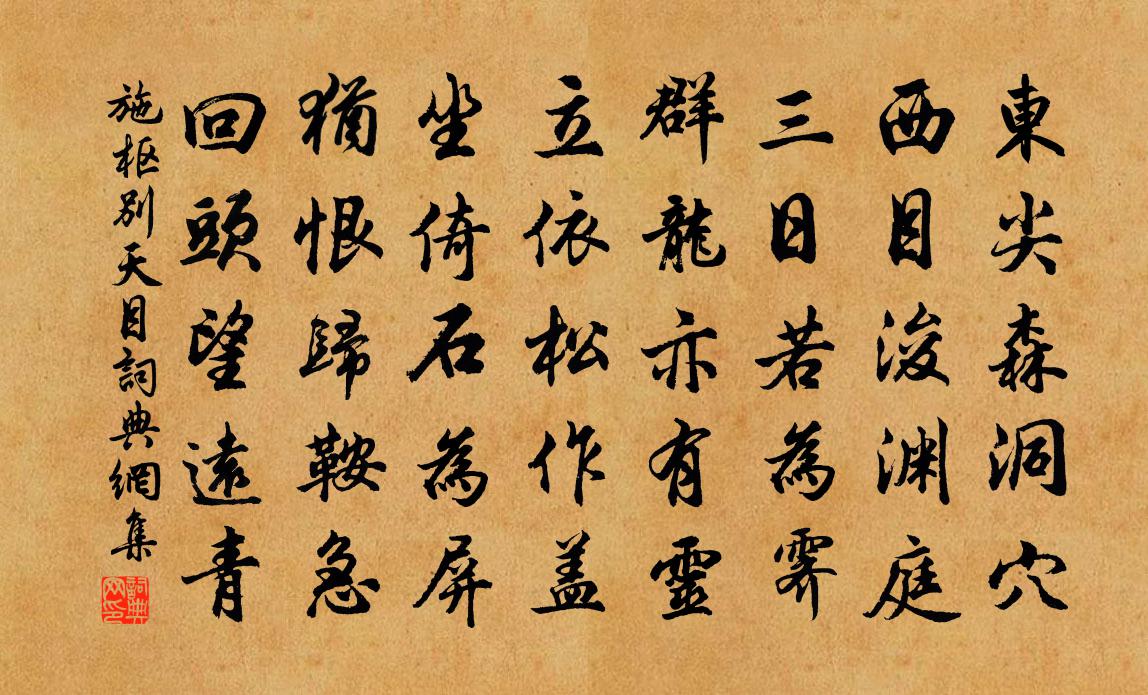 東尖森洞穴
西目浚渊庭
三日若為霽
群龍亦有靈
立依松作盖
坐倚石為屏
猶恨歸鞍急
回頭望遠青
施枢别天目詞典網集
詞典网印